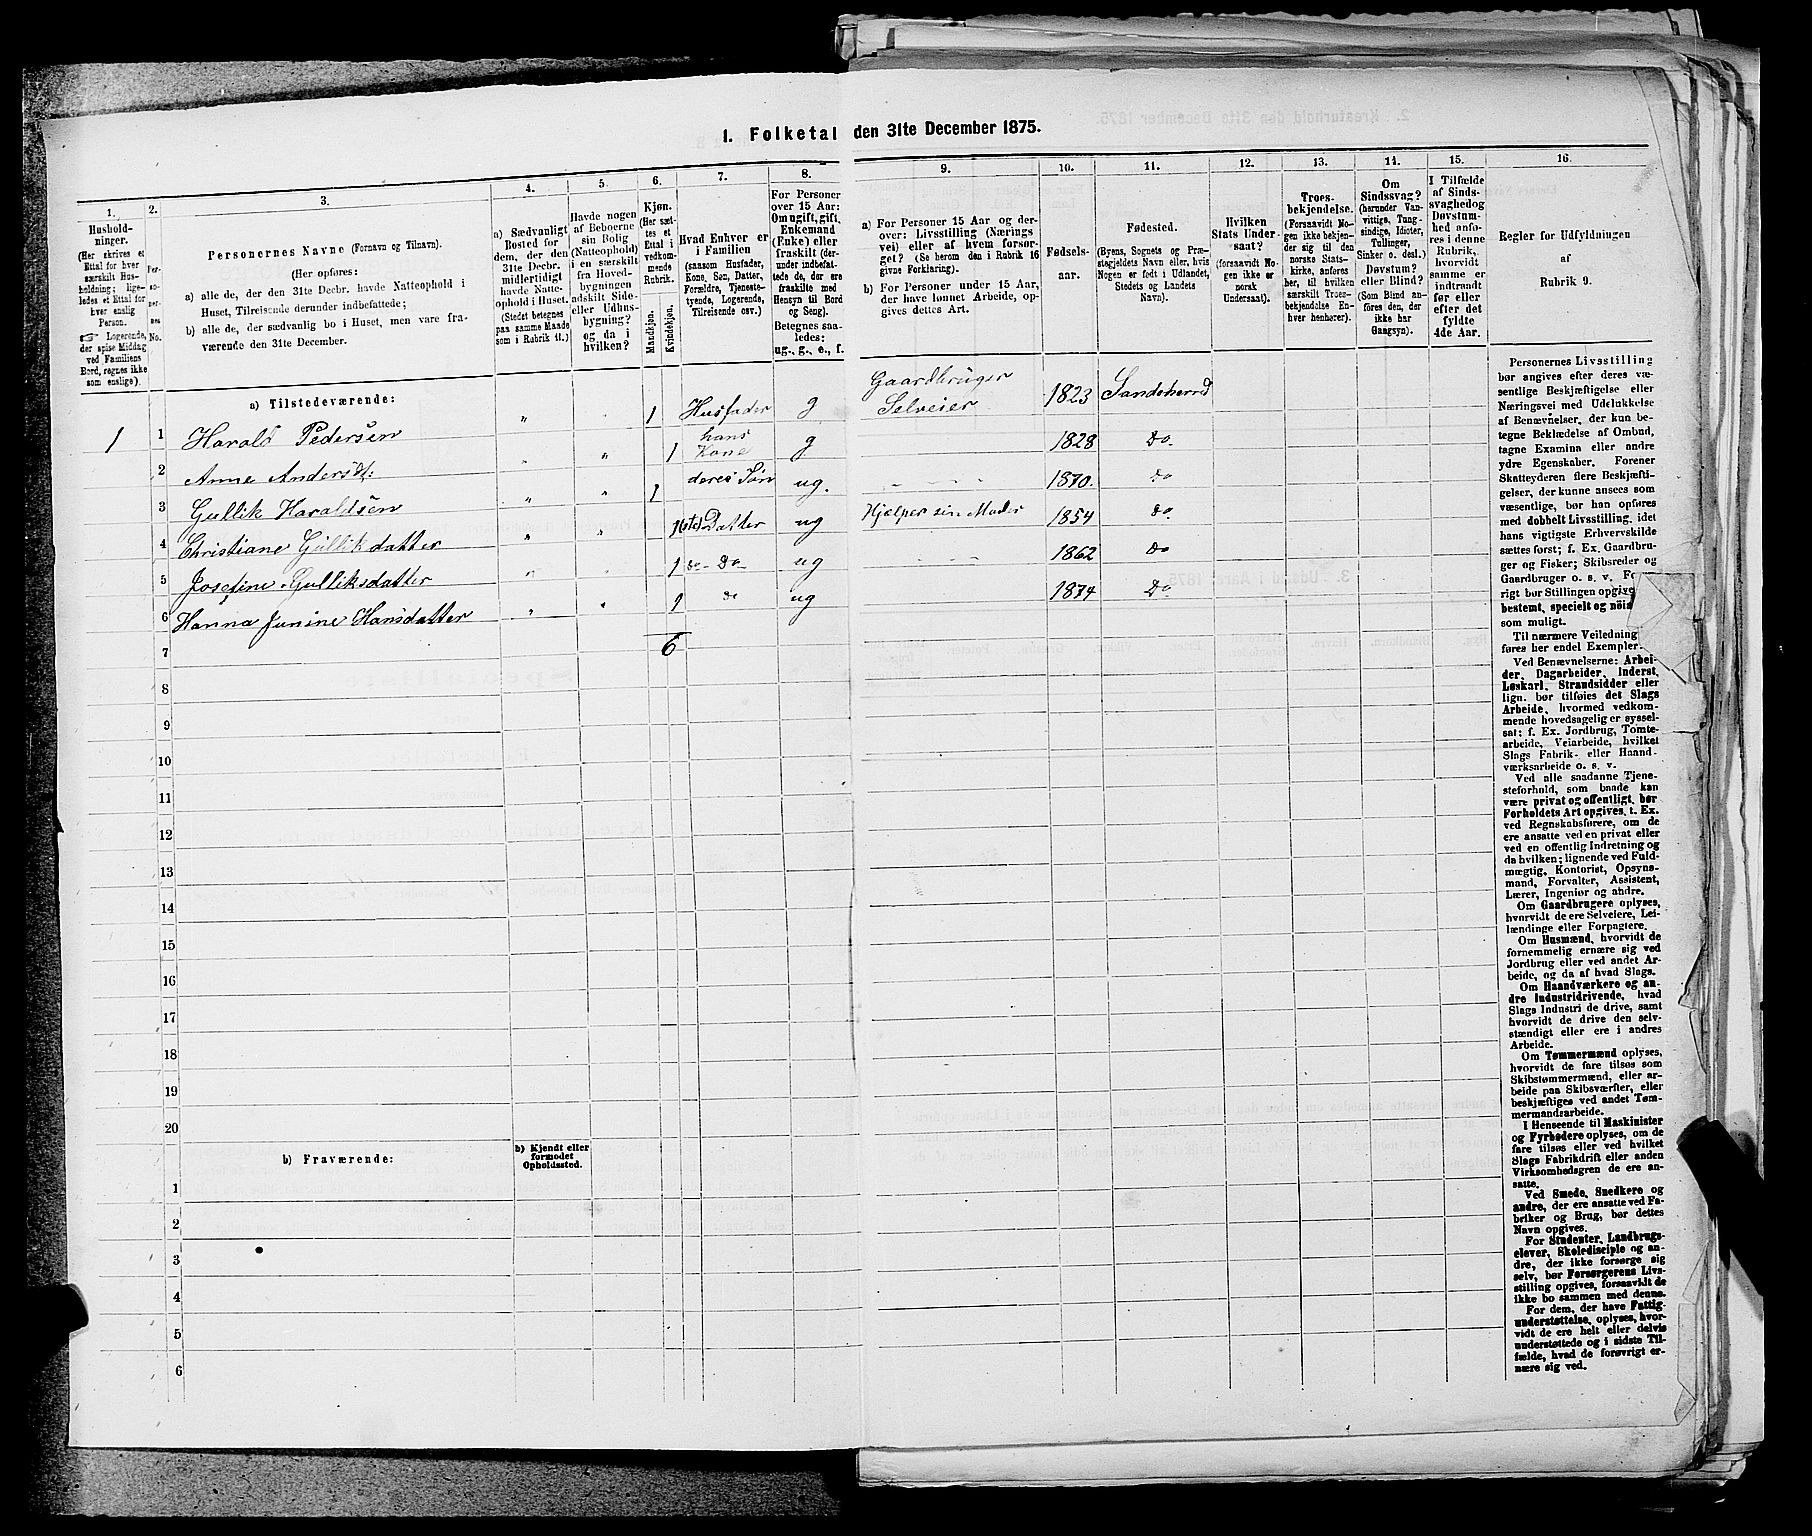 1. Folketal den 31te December 1875.
1.
Husholdninger.
(Her skrives et
Ettal for hver
særskilt Husholdning; ligeledes
et Ettal for
hver enslig
Person.
Logerende,
der spise Middag
ved Familiens
Bord, regnes ikke
som enslige).
2.
Personernes No.
3.
Personernes Navne (Fornavn og Tilnavn).
(Her opføres:
a) alle de, der den 31te Decbr. havde Natteophold i
Huset, Tilreisende derunder indbefattede;
b) alle de, der sædvanlig bo i Huset, men vare fraværende
den 31te December.
4.
a) Sædvanligt
Bosted for
dem, der den
31te Decbr.
midlertidigt
havde Natteophold
i Huset.
(Stedet betegnes
paa samme Maade
som i Rubrik 11.)
5.
Havde nogen
af Beboerne
sin Bolig
(Natteophold)
i en særskilt
fra Hovedbygningen
adskilt Side-
eller Udhusbygning?
og da i
hvilken?
6.
Kjøn.
(Her sættes
et
Ettal i
vedkommende
Rubrik.
Mandkjøn.
Kvindekjøn.
7.
Hvad Enhver er
i Familien
(saasom Husfader,
Kone, Søn, Datter,
Forældre, Tjenestetyende,
Logerende,
Tilreisende osv.)
8.
For Personer
over 15 Aar:
Om ugift, gift,
Enkemand
(Enke) eller
fraskilt (derunder
indbefattede
de, der ere
fraskilte med
Hensyn til Bord
og Seng).
Betegnes saaledes:
ug., g., e., f.
9.
a) For Personer 15 Aar og derover:
Livsstilling (Næringsvei)
eller af hvem forsørget?
(Se herom den i Rubrik 16
givne Forklaring).
b) For Personer under 15 Aar,
der have lønnet Arbeide, opgives
dettes Art.
10.
Fødselsaar.
11.
Fødested.
(Byens, Sognets og Præstegjeldets
Navn eller, hvis
Nogen er født i Udlandet,
Stedets og Landets
Navn).
12.
Hvilken
Stats Undersaat?
(forsaavidt Nogen
ikke er
norsk
Undersaat).
13.
Troesbekjendelse.
(Forsaavidt Nogen
ikke bekjender
sig til den
norske Statskirke,
anføres
her, til hvilken
særskilt Troesbekjendelse
Enhver
henhører).
14.
Om
Sindssvag?
(herunder Vanvittige,
Tungsindige,
Idioter,
Tullinger,
Sinker o. desl.)
Døvstum?
eller Blind?
(Som Blind anføres
den, der
ikke har
Gangsyn).
15.
I Tilfælde
af Sindssvaghed
og
Døvstumhed
anføres
i denne
Rubrik,
hvorvidt
samme er
indtraadt
før eller
efter det
fyldte
4de Aar.
16.
Regler for Udfyldningen
af
Rubrik 9.
a) Tilstedeværende:
1 1 Harald Pedersen " " 1 Husfader g Gaardbruger Selveier 1823 Sandeherred
2 Anne Andersdt: " " 1 hans Kone g 1828 Do
3 Gullik Haraldsen " " 1 deres Søn ug. - - - 1870. Do
4 Christiane Gullikdatter " " 1 Datter ug Hjelper sin Moder 1854 Do
5 Josefine Gulliksdatter " " 1 Do Do ug - - 1862 Do
6 Hanna Junine Hansdatter " " 1 do ug 1874 Do
7 6
8
9
10
11
12
13
14
15
16
17
18
19
20
b) Fraværende:
b) Kjendt eller
formodet
Opholdssted.
1
2
3
4
5
6
Personernes Livsstilling
bør angives efter deres væsentlige
Beskjæftigelse eller
Næringsvei med Udelukkelse
af Benævnelser, der kun betegne
Beklædelse af Ombud,
tagne Examina eller andre
ydre Egenskaber. Forener
Skatteyderen flere Beskjæftigelser,
der kunne ansees som
væsentlige, bør han opføres
med dobbelt Livsstilling, idet
hans vigtigste Erhvervskilde
sættes først; f. Ex. Gaardbruger
og Fisker; Skibsreder og
Gaardbruger o. s. v.
rigt bør Stillingen opgives
bestemt, specielt og
som muligt.
Til nærmere Veiledning
føres her endel Exempler.
Ved Benævnelserne: Arbeider,
Dagarbeider, Inderst,
Løskarl, Strandsidder eller
lign. bør tilføies det Slags
Arbeide, hvormed vedkommende
hovedsagelig er sysselsat;
f. Ex. Jordbrug, Tomtearbeide,
Veiarbeide, hvilket
Slags Fabrik- eller Haandværksarbeide
o. s. v.
Ved alle saadanne Tjenesteforhold,
som baade kan
være privat og offentligt, bør
Forholdets Art opgives, t. Ex.
ved Regnskabsførere, om de
ere ansatte ved en privat eller
ved en offentlig Indretning og
da hvilken; lignende ved Fuldmægtig,
Kontorist, Opsynsmand,
Forvalter, Assistent,
Lærer, Ingeniør og andre.
Om Gaardbrugere oplyses,
hvorvidt de ere Selveiere, Leilændinge
eller Forpagtere.
Om Husmænd, hvorvidt de
fornemmelig ernære sig ved
Jordbrug eller ved andet Arbeide,
og da af hvad Slags.
Om Haandværkere og andre
Industridrivende, hvad
Slags Industri de drive, samt
hvorvidt de drive den selvstændigt
eller ere i andres
Arbeide.
Om Tømmermænd oplyses,
hvorvidt de fare tilsøs som
Skibstømmermænd, eller arbeide
paa Skibsværfter, eller
beskjæftiges ved andet Tømmermandsarbeide.
I Henseende til Maskinister
og Fyrbødere oplyses, om de
fare tilsøs eller ved hvilket
Slags Fabrikdrift eller anden
Virksomhedsgren de ere ansatte.
Ved Smede, Snedkere og
andre, der ere ansatte ved Fabriker
og Brug, bør dettes
Navn opgives.
For Studenter, Landbrugselever,
Skoledisciple og andre,
der ikke forsørge sig
selv, bør Forsørgerens Livsstilling
opgives, forsaavidt de
ikke bo sammen med denne.
For dem, der have Fattigunderstøttelse,
oplyses, hvorvidt
de ere helt eller delvis
understøttede og i sidste Tilfælde,
hvad de forøvrigt ernære
sig ved.